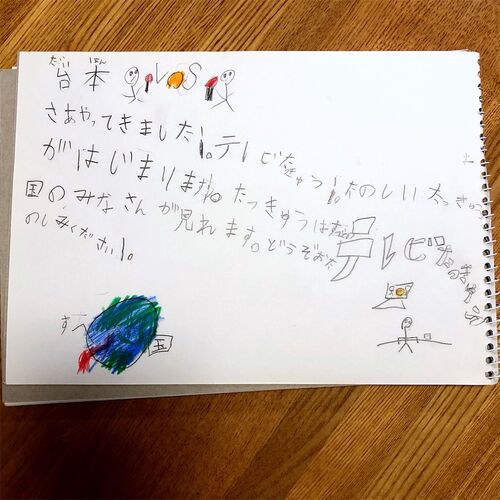 だいほん
台本 VS
さあやってきました!。テレビたっきゅう!。たのしいたっきゅう
がはじまりますね たっきゅうは
国のみなさんが見れます。どうぞおた
のしみください!。
テレビたっきゅう
すべ 国